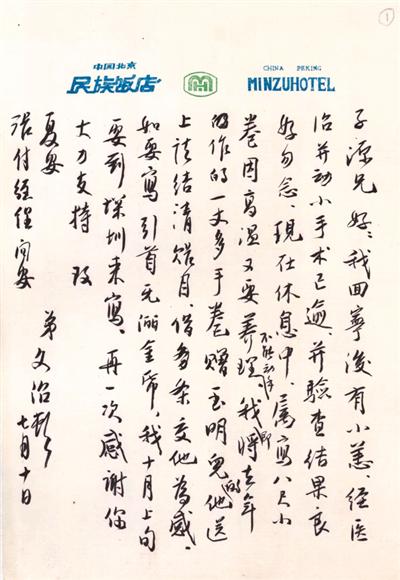 1
中国北京
民族饭店
CHINA PEKING
MINZUHOTEL
子源兄好、我回寧後有小恙、经医
治并动小手术已逾、并驗查结果良
好勿念、现在休息中、属寫八尺小
卷因高温又要养理、不能动手、我即将去年
作的一丈多手卷赠玉明兄的他送
上请结清账目、借条交他为感、
如要寫引首无洒金纸、我十月上旬
要到深圳来寫、再一次感谢你
大力支持 致
夏安
张付经理问安
弟 文治
七月十日